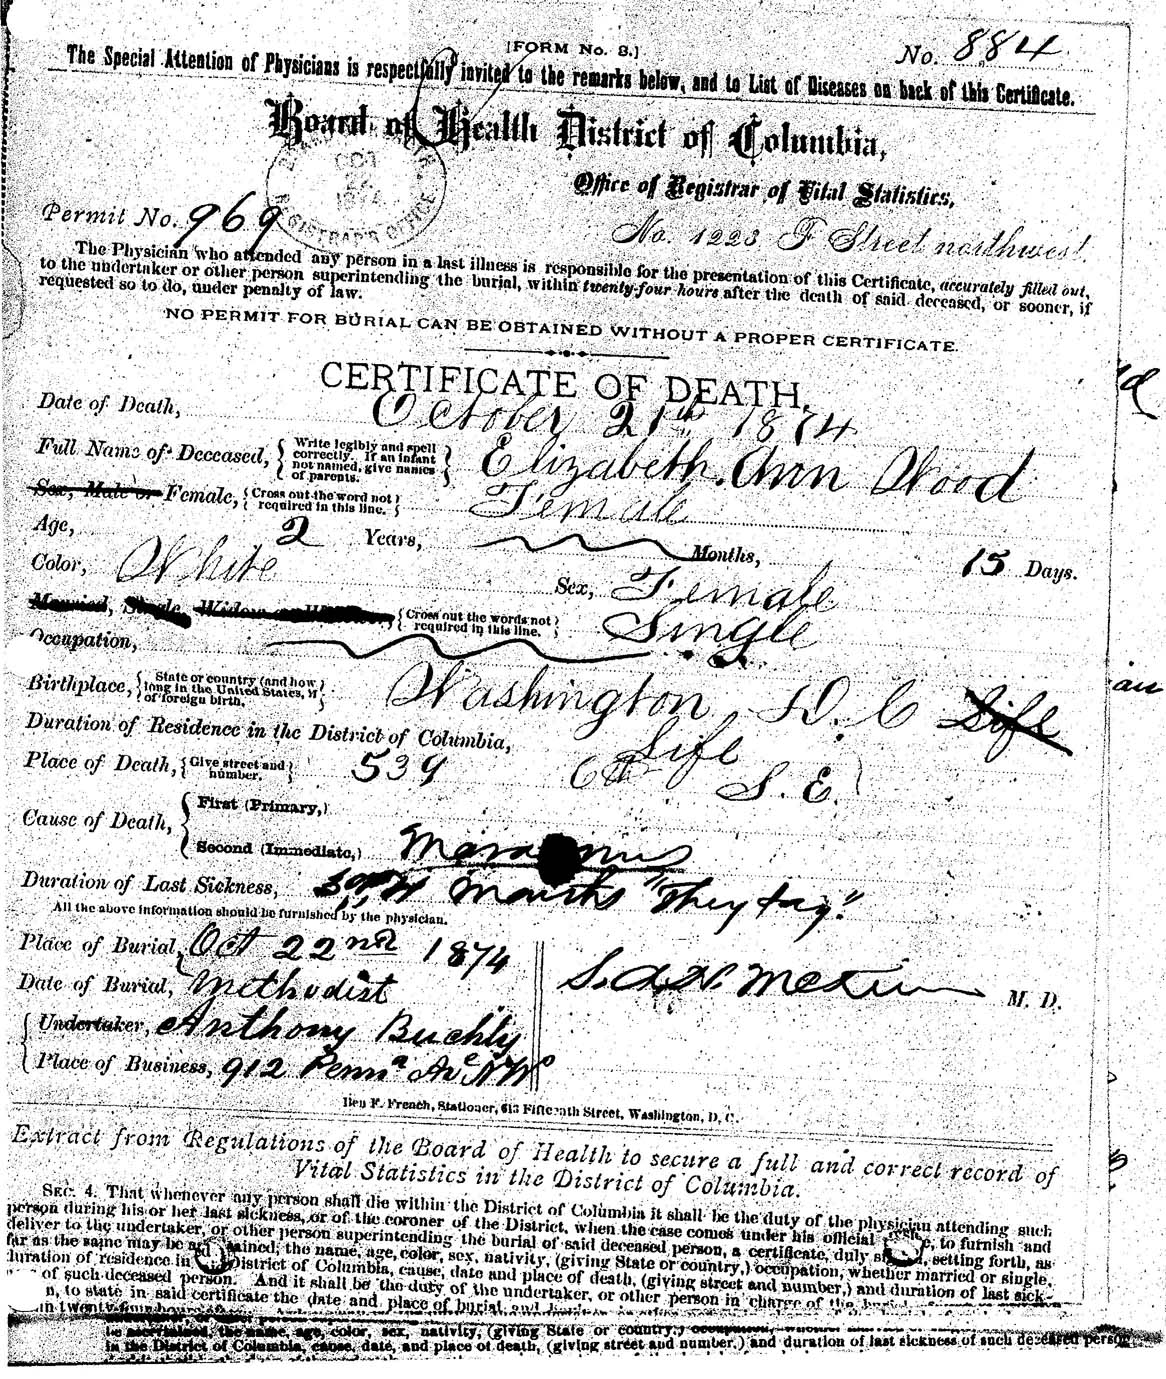 [FORM No. 8.]
No. 884
The Special Attention of Physicians is respectfully invited to the remarks below, and to List of Diseases on back of this Certificate.
Board of Health District of Columbia,
Office of Registrar of Vital Statistics,
OCT
1874
REGISTRAR'S OFFICE
Permit No. 969
No. 1223 F Street northwest.
The Physician who attended any person in a last illness is responsible for the presentation of this Certificate, accurately filled out,
to the undertaker or other person superintending the burial, within twenty-four hours after the death of said deceased, or sooner, if
requested so to do, under penalty of law.
NO PERMIT FOR BURIAL CAN BE OBTAINED WITHOUT A PROPER CERTIFICATE.
CERTIFICATE OF DEATH,
Date of Death, October 21st 1874
Full Name of Deceased, { Write legibly and spell correctly. If an infant not named, give names of parents. } Elizabeth Ann Wood
Sex, Male or Female, { Cross out the word not required in this line. } Female
Age, 2 Years, Months, 15 Days.
Color, White Sex, Female
Married, Single, Widow or { Cross out the words not required in this line. } Single
Occupation,
Birthplace, { State or country (and how long in the United States, if of foreign birth. } Washington D. C Life
Duration of Residence in the District of Columbia, Life
Place of Death, { Give street and number. } 539 6th S. E.
Cause of Death, { First (Primary,)
Second (Immediate,) Marasmus
Duration of Last Sickness, Months "They say."
All the above information should be furnished by the physician.
Place of Burial, Oct 22nd 1874
Date of Burial, Methodist
S. A. H. M. D.
Undertaker, Anthony Buchly
Place of Business, 912 Penna Ave N W
Ben F. French, Stationer, 613 Fifteenth Street, Washington, D. C.
Extract from Regulations of the Board of Health to secure a full and correct record of
Vital Statistics in the District of Columbia.
SEC. 4. That whenever any person shall die within the District of Columbia it shall be the duty of the physician attending such
person during his or her last sickness, or of the coroner of the District, when the case comes under his official to furnish and
deliver to the undertaker, or other person superintending the burial of said deceased person, a certificate, duly setting forth, as
far as the same may be the name, age, color, sex, nativity, (giving State or country,) occupation, whether married or single,
duration of residence in District of Columbia, cause, date and place of death, (giving street and number,) and duration of last sick-
of such deceased person. And it shall be the duty of the undertaker, or other person in charge of the burial
n, to state in said certificate the date and place of burial, and
in twenty-four hours
the name, age, color, sex, nativity, (giving State or country,) occupation,
in the District of Columbia, cause, date, and place of death, (giving street and number.) and duration of last sickness of such deceased person